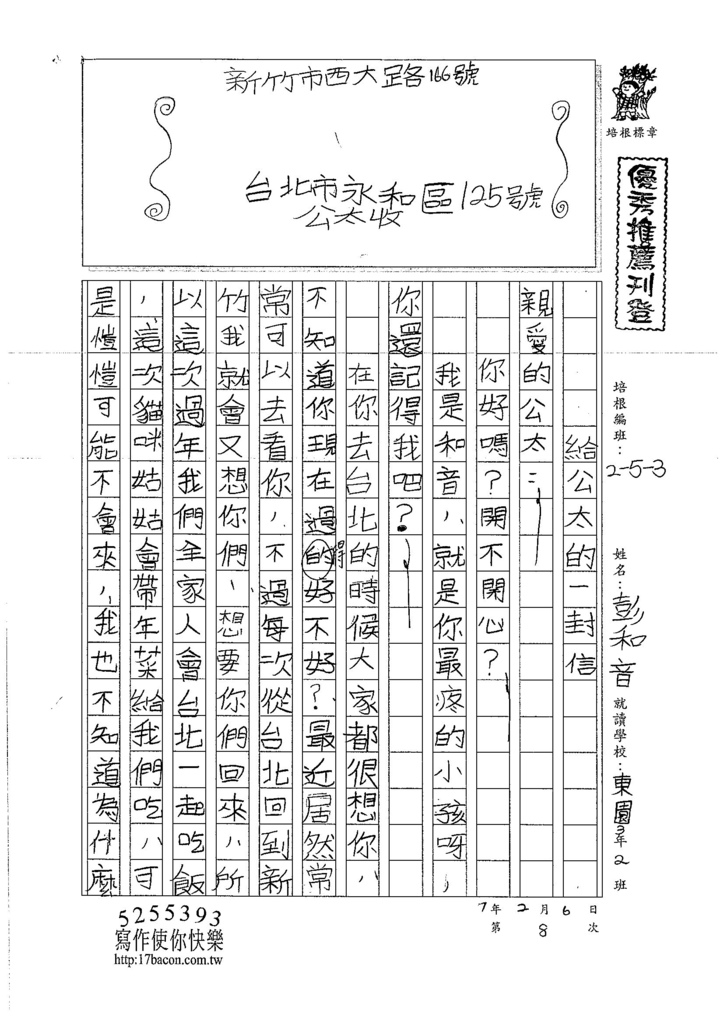 新竹市西大路166號
台北市永和區125號
公太收
培根標章
優秀推薦刊登
培根編班：2-5-3
姓名：彭和音
就讀學校：東園3年2班
7年2月6日
第8次
給公太的一封信
親愛的公太：
你好嗎？開不開心？
我是和音，就是你最疼的小孩呀，
你還記得我吧？
在你去台北的時候大家都很想你，
不知道你現在過的得好不好？最近居然常
常可以去看你，不過每次從台北回到新
竹我就會又想你們，想要你們回來，所
以這次過年我們全家人會台北一起吃飯
，這次貓咪姑姑會帶年菜給我們吃，可
是愷愷可能不會來，我也不知道為什麼
5255393
寫作使你快樂
http:17bacon.com.tw